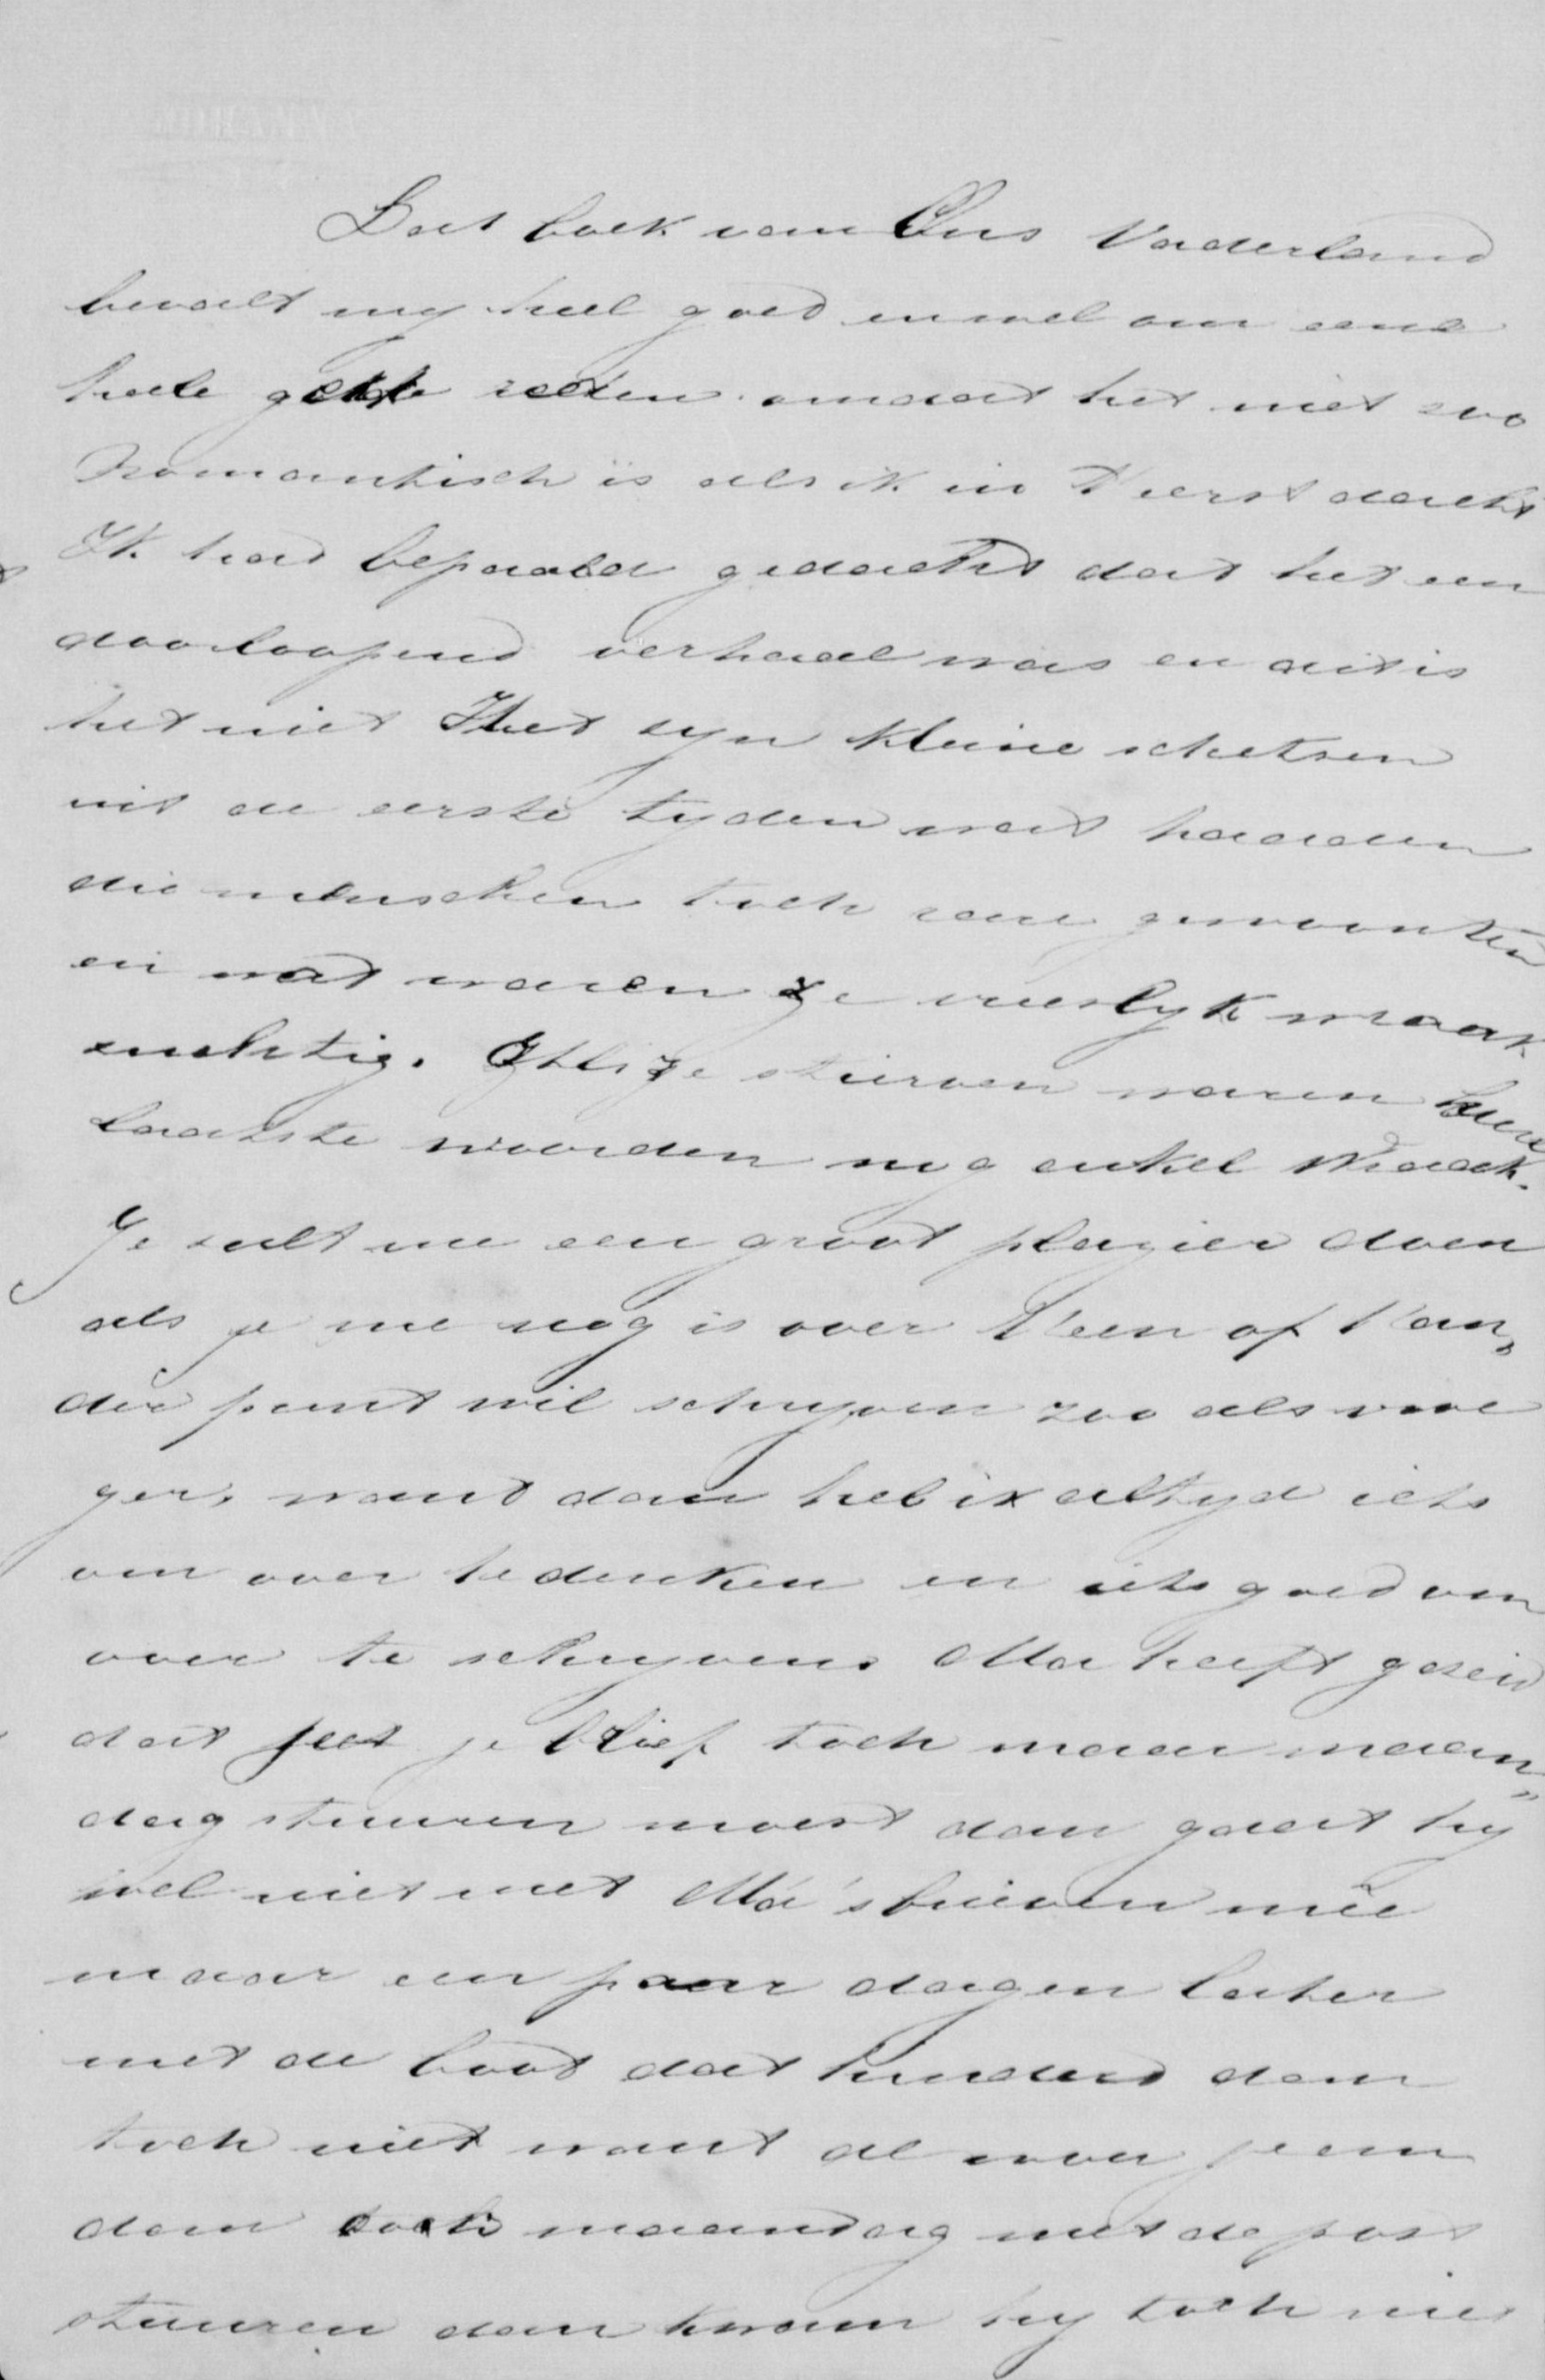 Dat boek van Ons Vaderland
bevalt my heel goed en wel om eene
heele gekke reden omdat het niet zoo
Romantisch is als ik in 't eerst dacht
Ik had bepaald gedacht dat het een
doorloopend verhaal was en dit is
het niet Het zyn kleine schetsen
uit de eerste tyden wat hadden
die menschen toch rare gewoonten
en wat waren ze vreeslyk wraak
zuchtig. Als ze stierven waren hun
laatste woorden nog enkel Wraak.
Je zult me een groot plezier doen
als je me nog is over 't een of 't an„
der punt wil schryven zoo als vroe
ger, want dan heb ik altyd iets
om over te denken en iets goed om
over te schryven. Ma heeft gezeid
dat je brief toch maar maan„
dag sturen moest dan gaat hy
wel niet met Ma's brieven meê
maar een paar dagen later
met de boot dat hinderd dan
toch niet want al wou je em
dan toch maandag met de post
sturen dan kwam hy toch niet